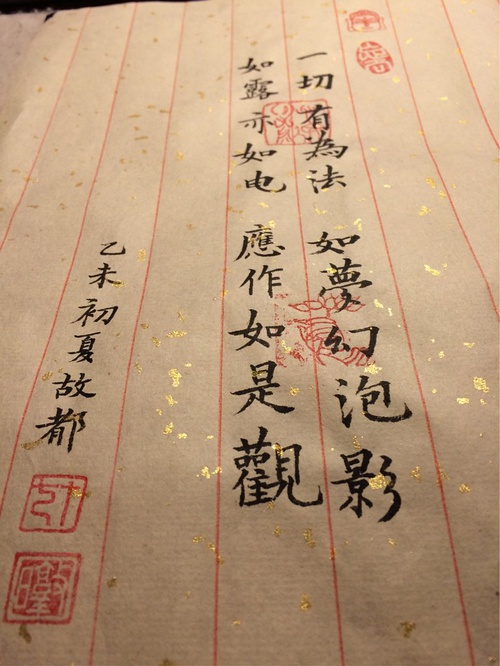 一切有為法 如夢幻泡影
如露亦如电 應作如是觀
乙未初夏故都